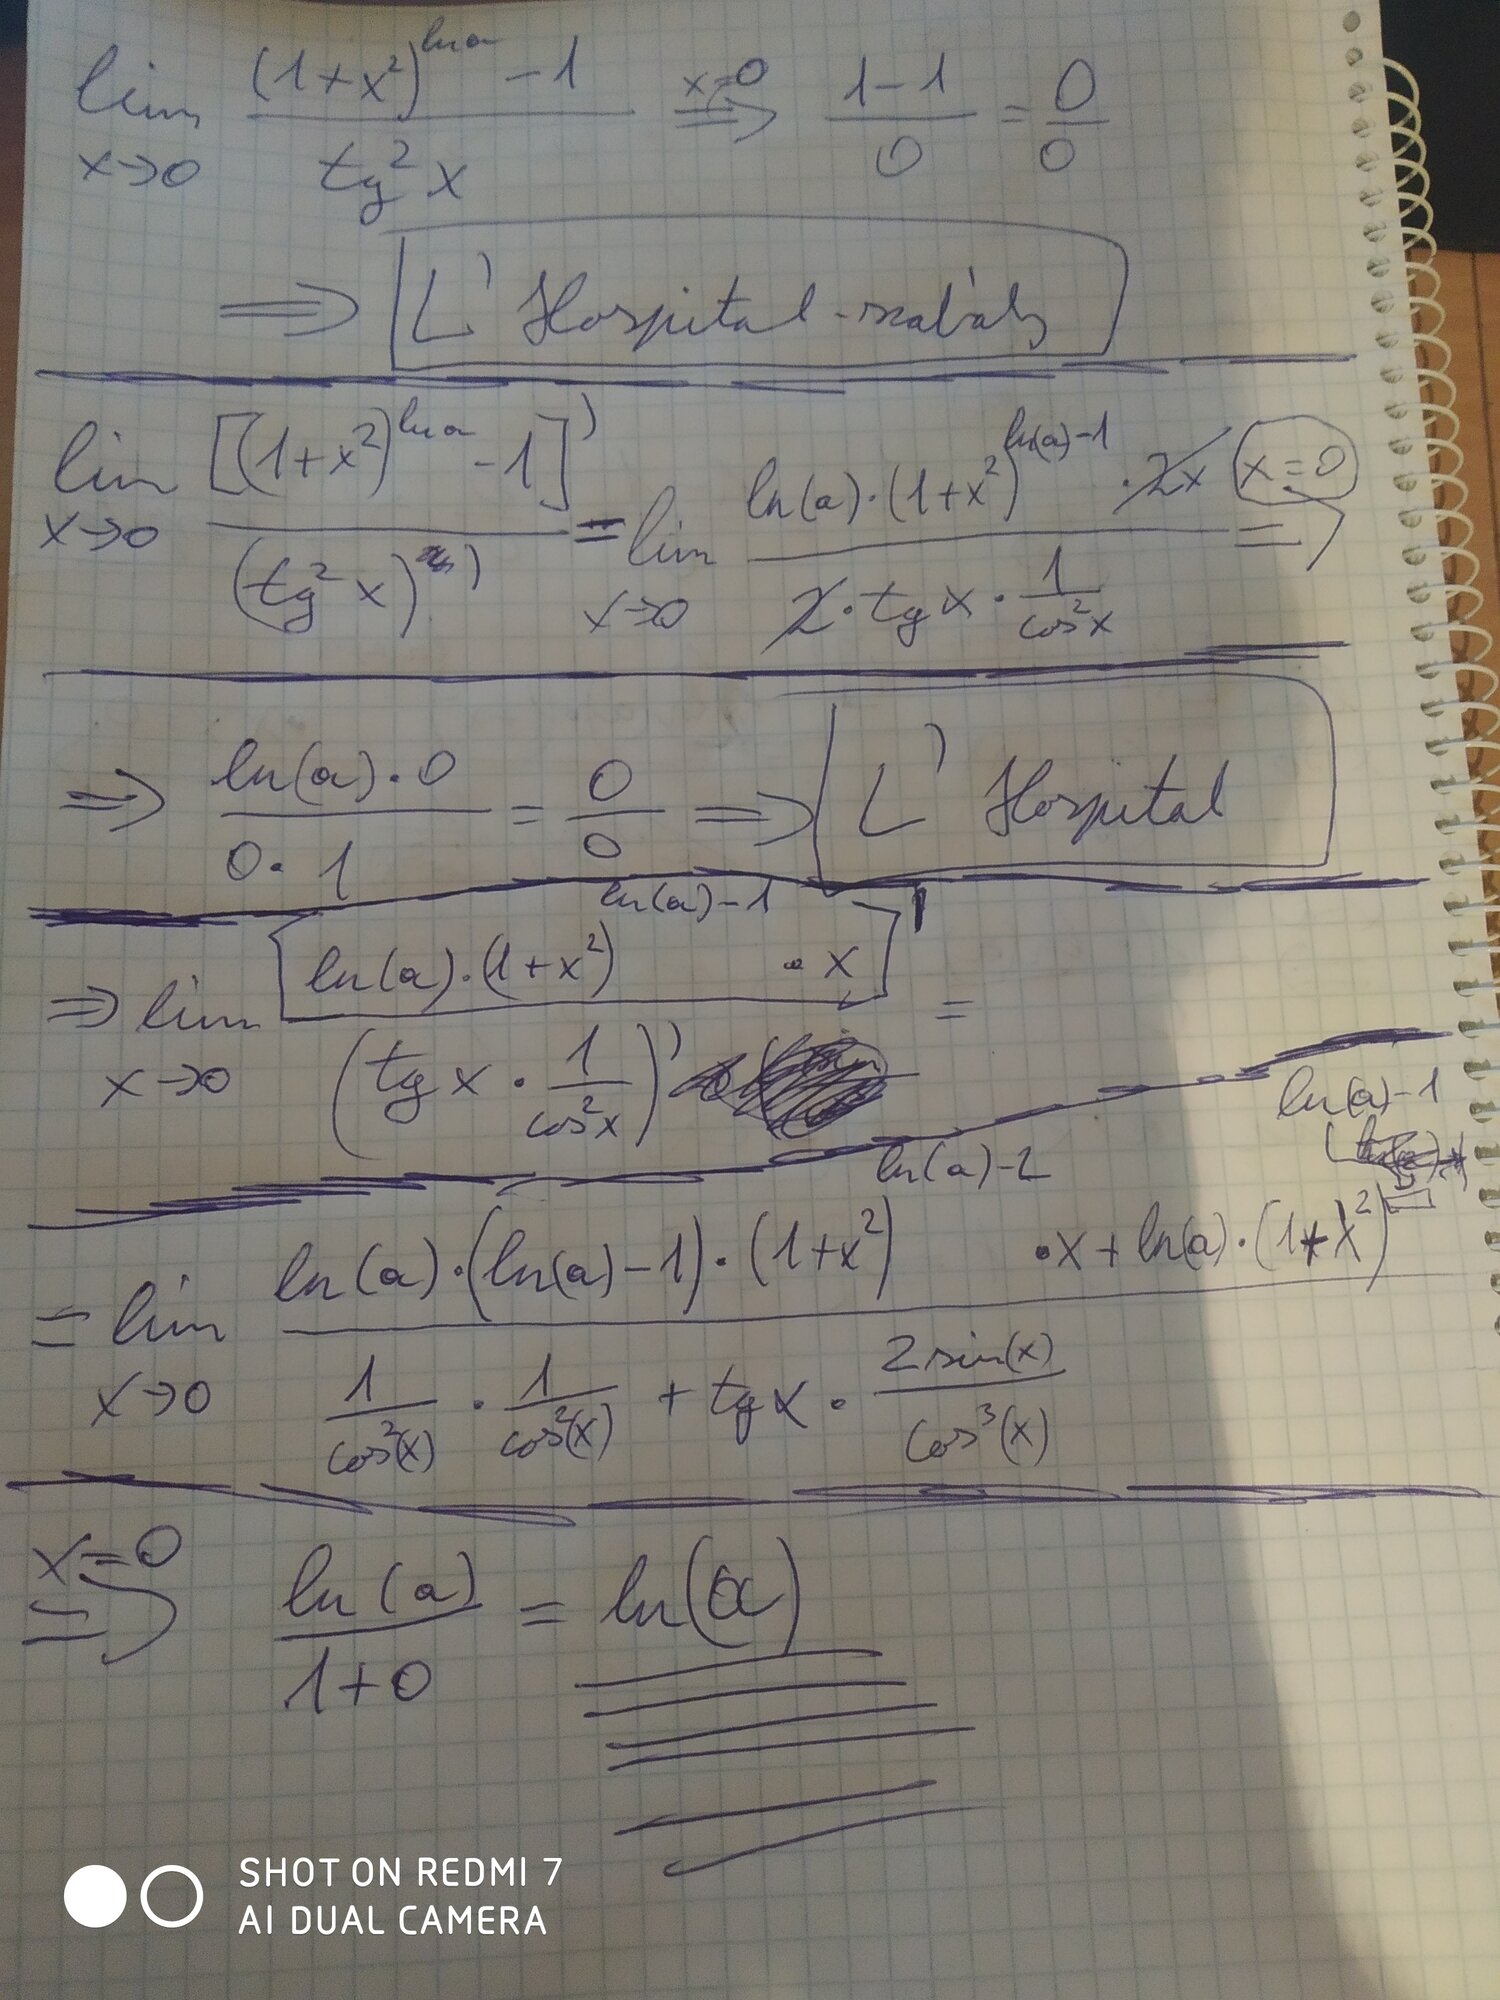 lim x→0 ((1+x²)^(ln a) - 1) / (tg² x) ⇒ x=0 (1-1)/0 = 0/0
⇒ L' Hospital-szabály
lim x→0 [(1+x²)^(ln a) - 1]' / (tg² x)' = lim x→0 (ln(a)·(1+x²)^(ln(a)-1) · 2x) / (2·tg x · 1/(cos² x)) x=0 ⇒
⇒ (ln(a)·0)/(0·1) = 0/0 ⇒ L' Hospital
⇒ lim x→0 [ln(a)·(1+x²)^(ln(a)-1) · x]' / (tg x · 1/(cos² x))' =
= lim x→0 (ln(a)·(ln(a)-1)·(1+x²)^(ln(a)-2) · x + ln(a)·(1+x²)^(ln(a)-1)) / (1/(cos²(x)) · 1/(cos²(x)) + tg x · (2 sin(x))/(cos³(x)))
x=0 ⇒ ln(a)/(1+0) = ln(a)
SHOT ON REDMI 7
AI DUAL CAMERA